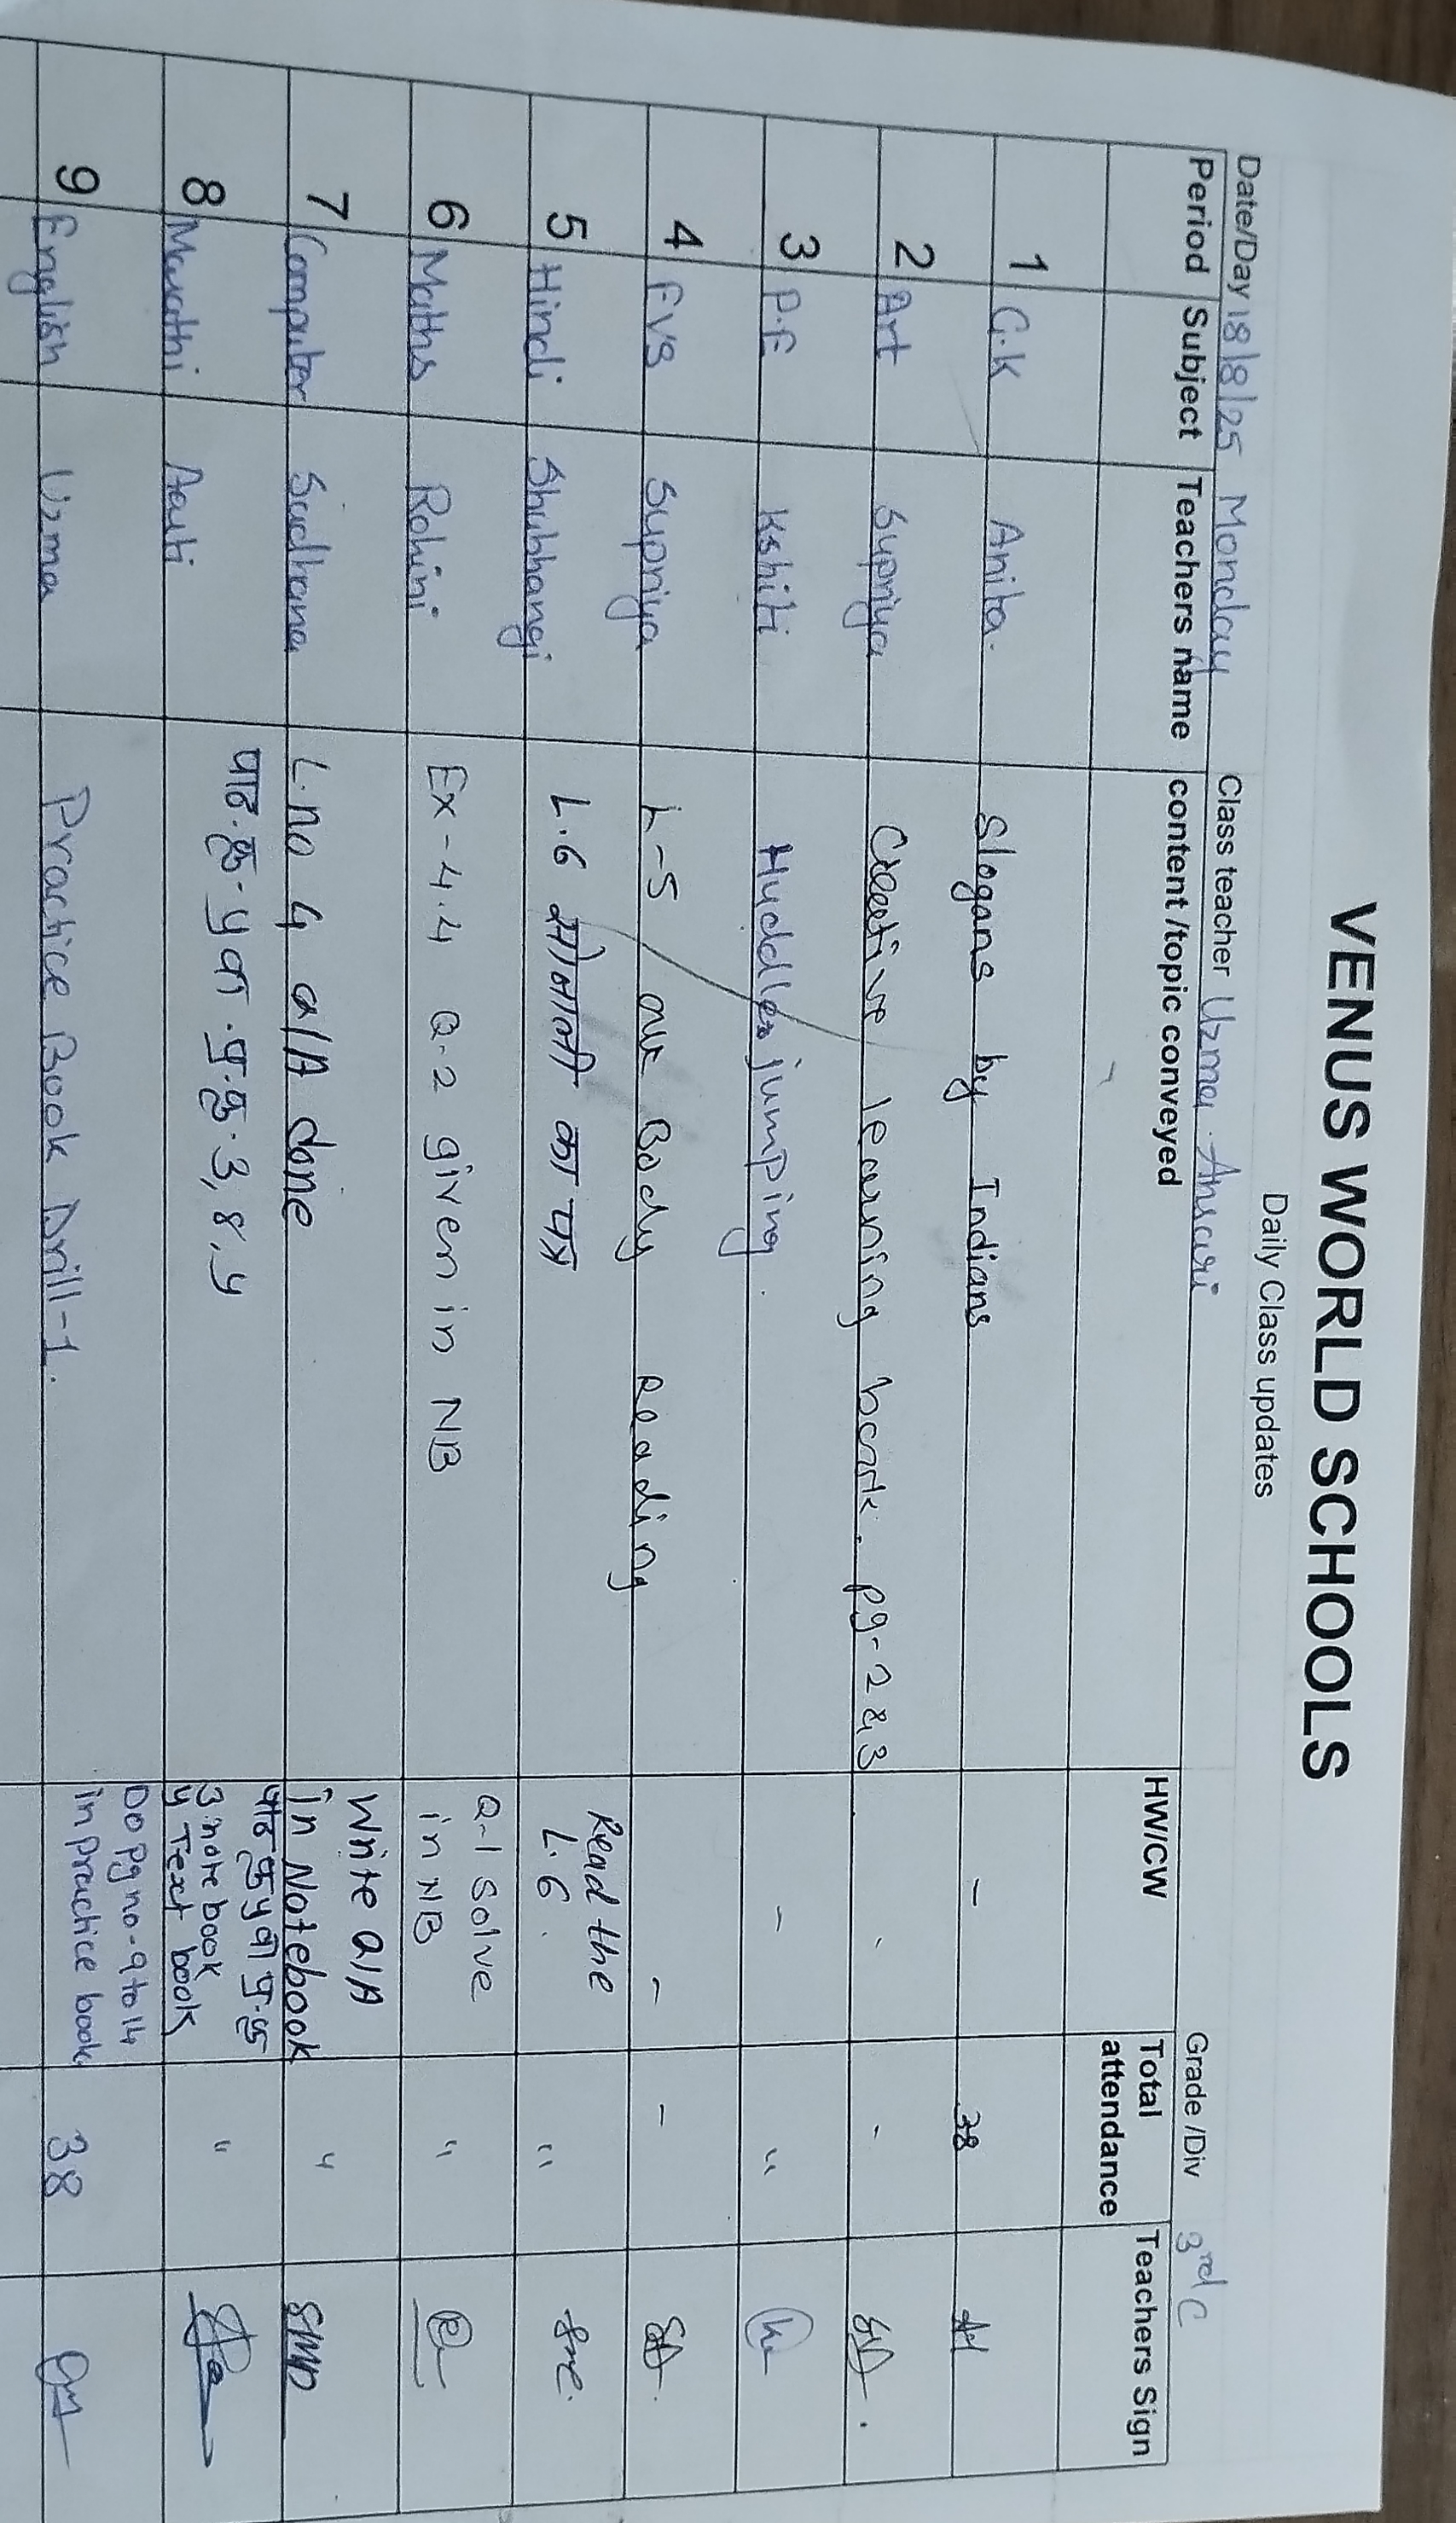 VENUS WORLD SCHOOLS
Daily Class updates
Date/Day 18/8/25 Monday Class teacher Uzma. Ansari Grade /Div 3rd C
Period Subject Teachers name content /topic conveyed HW/CW Total attendance Teachers Sign
1 G.K Anita. Slogans by Indians - 38
2 Art Supriya Creative learning book. pg-2 & 3 - -
3 P.E Kshiti Huddles jumping. - "
4 EVS Supriya L-5 our Body Reading - -
5 Hindi Shubhangi L.6 मोनाली का पत्र Read the L.6. "
6 Maths Rohini Ex-4.4 Q.2 given in NB Q-1 Solve in NB "
7 Computer Sadhana L.no 4 Q/A done Write Q/A in Notebook " SMD
8 Marathi Aarti पाठ.क्र-५ वा .प्र.क्र.3,४,५ पाठ क्र ५ वा प्र.क्र 3 notebook ५ Text book "
9 English Uzma Practice Book Drill-1. Do pg no-9 to 14 in practice book 38